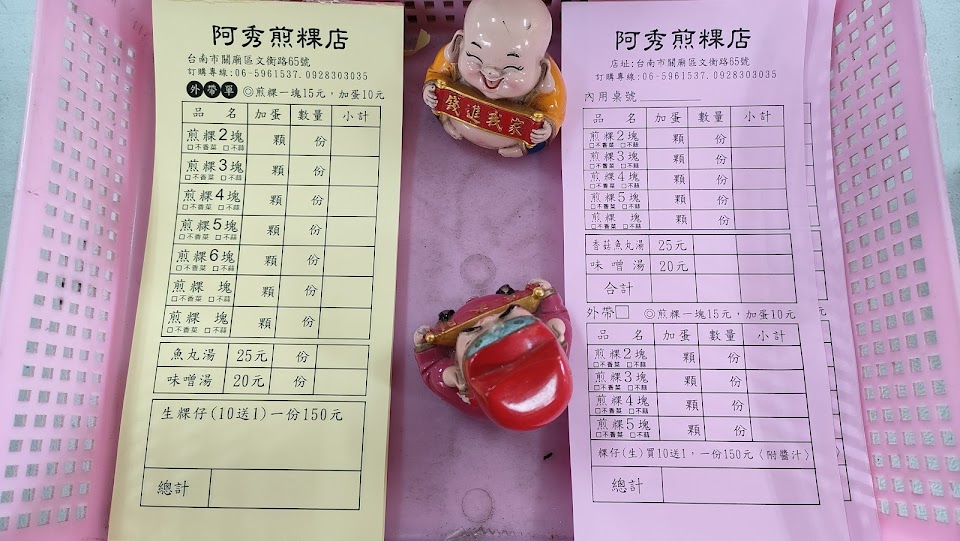 阿秀煎粿店
台南市關廟區文衡路65號
訂購專線:06-5961537.0928303035
外帶單 ◎煎粿一塊15元，加蛋10元
品 名 加蛋 數量 小計
煎粿2塊 顆 份
□不香菜 □不蒜
煎粿3塊 顆 份
□不香菜 □不蒜
煎粿4塊 顆 份
□不香菜 □不蒜
煎粿5塊 顆 份
□不香菜 □不蒜
煎粿6塊 顆 份
□不香菜 □不蒜
煎粿 塊 顆 份
□不香菜 □不蒜
煎粿 塊 顆 份
□不香菜 □不蒜
魚丸湯 25元 份
味噌湯 20元 份
生粿仔(10送1)一份150元
總計
錢進我家
阿秀煎粿店
店址:台南市關廟區文衡路65號
訂購專線:06-5961537.0928303035
內用桌號
品 名 加蛋 數量 小計
煎粿2塊 顆 份
□不香菜 □不蒜
煎粿3塊 顆 份
□不香菜 □不蒜
煎粿4塊 顆 份
□不香菜 □不蒜
煎粿5塊 顆 份
□不香菜 □不蒜
煎粿 塊 顆 份
□不香菜 □不蒜
香菇魚丸湯 25元
味噌湯 20元
合計
外帶□ ◎煎粿一塊15元，加蛋10元
品 名 加蛋 數量 小計
煎粿2塊 顆 份
□不香菜 □不蒜
煎粿3塊 顆 份
□不香菜 □不蒜
煎粿4塊 顆 份
□不香菜 □不蒜
煎粿5塊 顆 份
□不香菜 □不蒜
粿仔(生)買10送1，一份150元〈附醬汁〉
總計